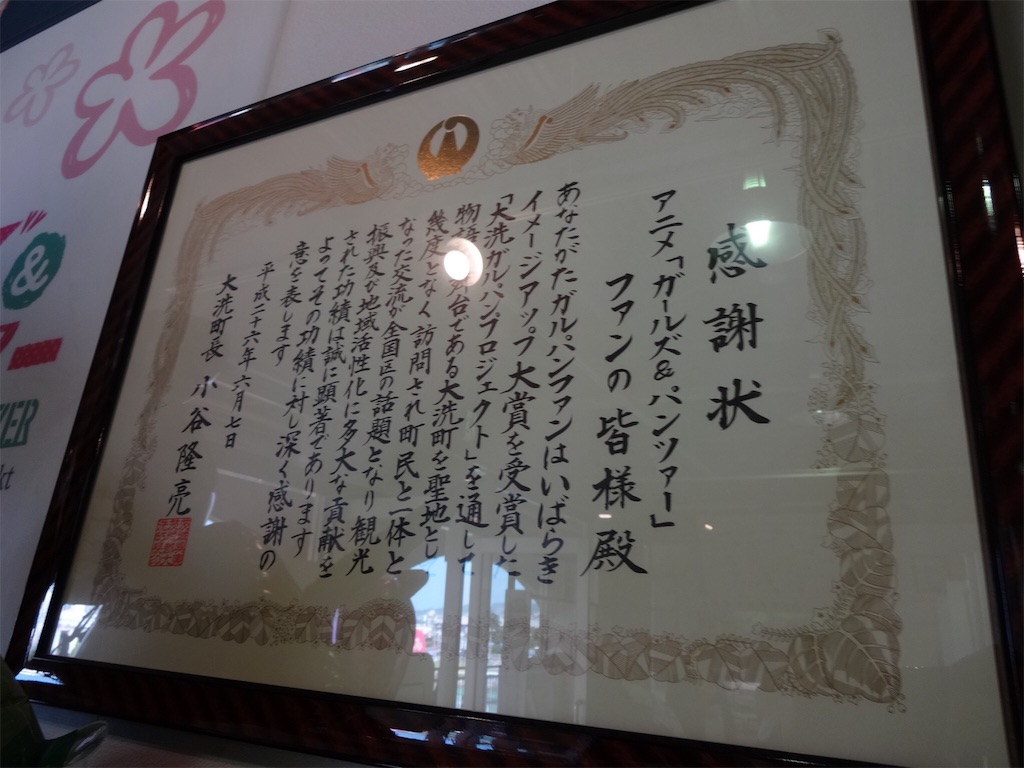 感謝状
アニメ「ガールズ&パンツァー」
ファンの皆様殿
あなたがたガルパンファンはいばらき
イメージアップ大賞を受賞した
「大洗ガルパンプロジェクト」を通して
物語の舞台である大洗町を聖地とし
幾度となく訪問され町民と一体と
なった交流が全国区の話題となり観光
振興及び地域活性化に多大な貢献を
された功績は誠に顕著であります
よってその功績に対し深く感謝の
意を表します
平成二十六年六月七日
大洗町長 小谷隆亮
&